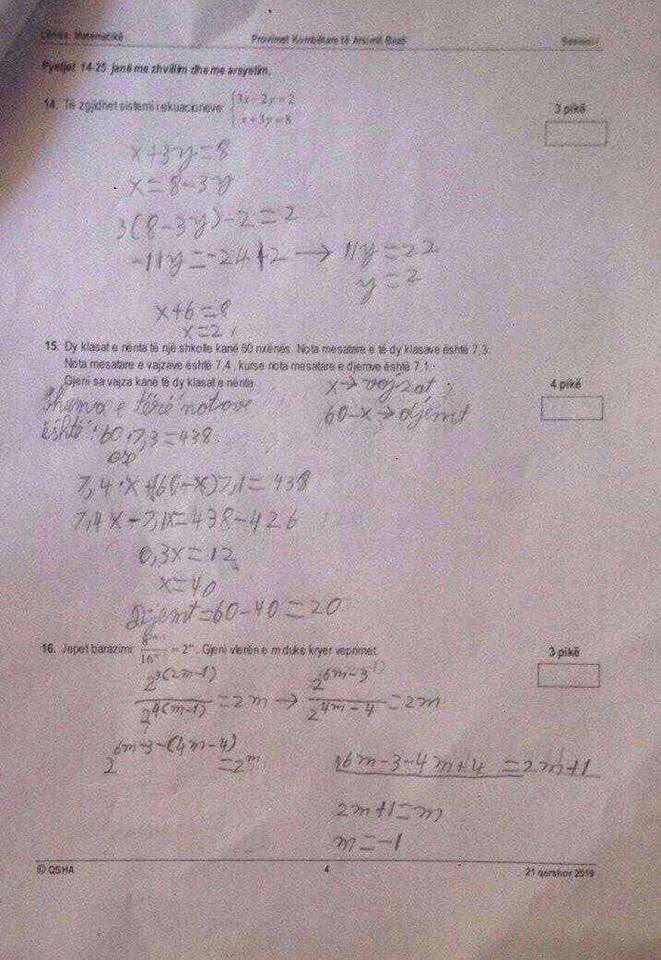 Lënda: Matematikë Provimet Kombëtare të Arsimit Bazë Sesioni I
Pyetjet 14-25 janë me zhvillim dhe me arsyetim.
14. Të zgjidhet sistemi i ekuacioneve: {3x-2y=2 3 pikë
x+3y=8
x+3y=8
x=8-3y
3(8-3y)-2=2
-11y=-24+2 → 11y=22
y=2
x+6=8
x=2
15. Dy klasat e nënta të një shkolle kanë 60 nxënës. Nota mesatare e të dy klasave është 7,3.
Nota mesatare e vajzave është 7,4 , kurse nota mesatare e djemve është 7,1.
Gjeni sa vajza kanë të dy klasat e nënta. 4 pikë
x→vajzat
Shuma e tërë notave 60-x→djemt
është: 60·7,3=438.
7,4·x+(60-x)7,1=438
7,4x-7,1x=438-426
0,3x=12
x=40
Djemt=60-40=20
16. Jepet barazimi: = 2ᵐ. Gjeni vlerën e m duke kryer veprimet. 3 pikë
2^3(2m-1) / 2^4(m-1) =2m → 2^6m-3 / 2^4m-4 =2m
2^6m-3-(4m-4) =2^m
6m-3-4m+4 =2m+1
2m+1=m
m=-1
© QSHA 4 21 qershor 2019